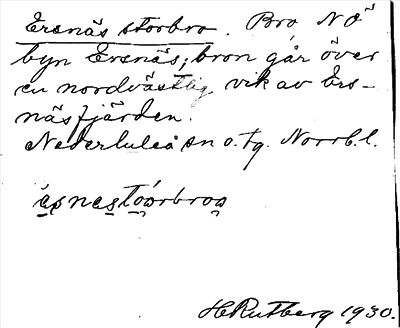 Ersnäs storbro. Bro NÖ
byn Ersnäs; bron går över
en nordvästlig vik av Ers-
näsfjärden.
Nederluleå sn o. tg. Norrb. l.
H Rutberg 1930.